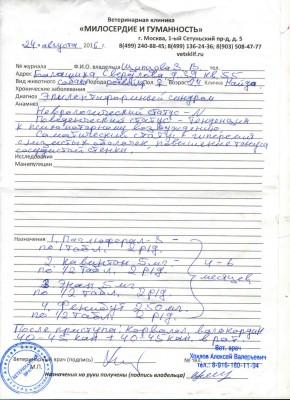 Ветеринарная клиника
«МИЛОСЕРДИЕ И ГУМАННОСТЬ»
г. Москва, 1-ый Сетуньский пр-д, д. 5
8(499) 240-88-45; 8(499) 136-24-36; 8(903) 508-47-77
vetsklif.ru
24 августа 2016 г.
№ журнала Ф.И.О. владельца З. В. тел.
Адрес Балашиха, Свердлова д. 39 кв. 55
Вид животного собака Возраст Кличка
Хронические заболевания
Диагноз Эпилептиформный синдром
Анамнез Неврологический статус - N
Поведенческий статус - Тенденция
к психомоторному возбуждению.
Соматический статус - гиперемия
слизистых оболочек, повышение тонуса
сосудистой стенки.
Исследования
Манипуляции
Назначения 1. Паглюферал-3 -
по 1 табл. 2 р/д.
2. Кавинтон 5 мг -
по 1/2 табл. 2 р/д.
3. 5 мг
по 1/2 табл. 2 р/д.
4. Фенибут 250 мг.
по 1/2 табл. 2 р/д.
4-6
месяцев
После приступа: Корвалол, валокордин
40-45 кап + 40-45 кап. в рот.
Ветеринарный врач (подпись)
М.П.
Вет. врач
Хохлов Алексей Валерьевич
тел.: 8-916-180-11-94
Назначения на руки получены (подпись владельца)